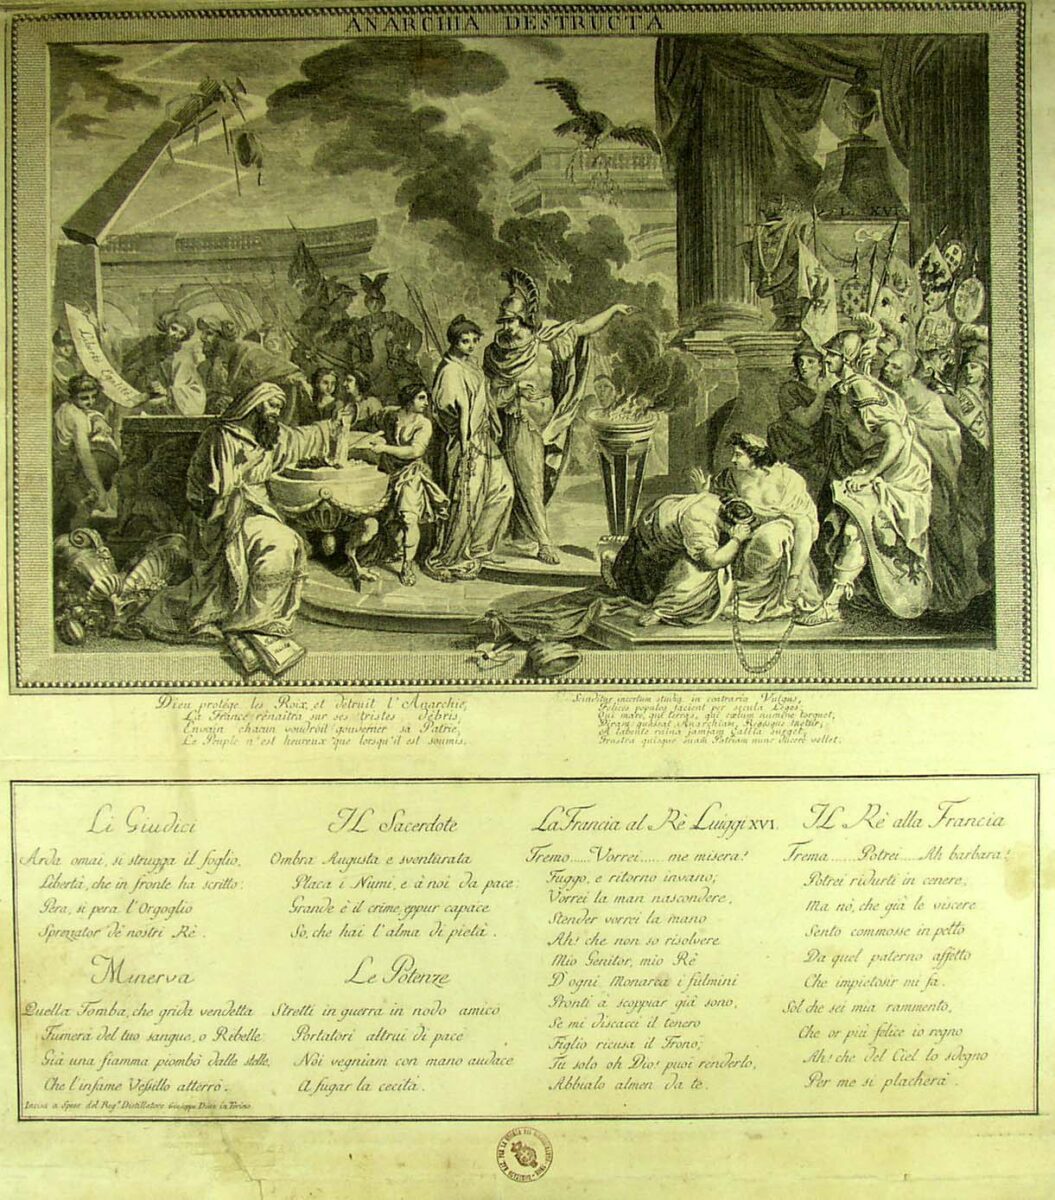 ANARCHIA DESTRUCTA
L. XVI
Liberté
Egalité
Dieu protége les Roix, et détruit l'Anarchie,
La France renaîtra sur ses tristes débris,
Envain chacun voudroit gouverner sa Patrie,
Le Peuple n'est heureux que lorsqu'il est soumis.
Scinditur incertum studia in contraria Vulgus,
Felices populos facient per sæcula Leges
Qui mare, qui terras, qui cœlum numine torquet,
Diram quassat Anarchiam, Regesque tuetur;
A labente ruina jamjam Gallia surget;
Frustra quisque suam Patriam nunc ducere vellet.
Li Giudici
Arda omai, si strugga il foglio,
Libertà, che in fronte ha scritto:
Pera, si pera l'Orgoglio
Sprezzator de nostri Rè.
Minerva
Quella Tomba, che grida vendetta
Fumerà del tuo sangue, o Ribelle
Già una fiamma piombò dalle stelle,
Che l'infame Vessillo atterrò.
Incisa a Spese del Reg.º Distillatore Giuseppe in Torino
IL Sacerdote
Ombra Augusta e sventurata
Placa i Numi, e à noi da pace:
Grande è il crime, eppur capace
So, che hai l'alma di pietà.
Le Potenze
Stretti in guerra in nodo amico
Portatori altrui di pace
Noi vegniam con mano audace
A fugar la cecità.
La Francia al Rè Luiggi XVI.
Tremo..... Vorrei..... me misera!
Fuggo, e ritorno invano;
Vorrei la man nascondere,
Stender vorrei la mano
Ah! che non so risolvere
Mio Genitor, mio Rè
D'ogni Monarca i fulmini
Pronti à scoppiar già sono,
Se mi discacci il tenero
Figlio ricusa il Trono;
Tu solo oh Dio! puoi renderlo,
Abbialo almen da te.
IL Rè alla Francia
Trema..... Potrei.... Ah barbara!
Potrei ridurti in cenere,
Ma nò, che già le viscere
Sento commosse in petto
Da quel paterno affetto
Che impietosir mi fa.
Sol che sei mia rammento,
Che or più felice io regno
Ah! che del Ciel lo sdegno
Per me si placherà.